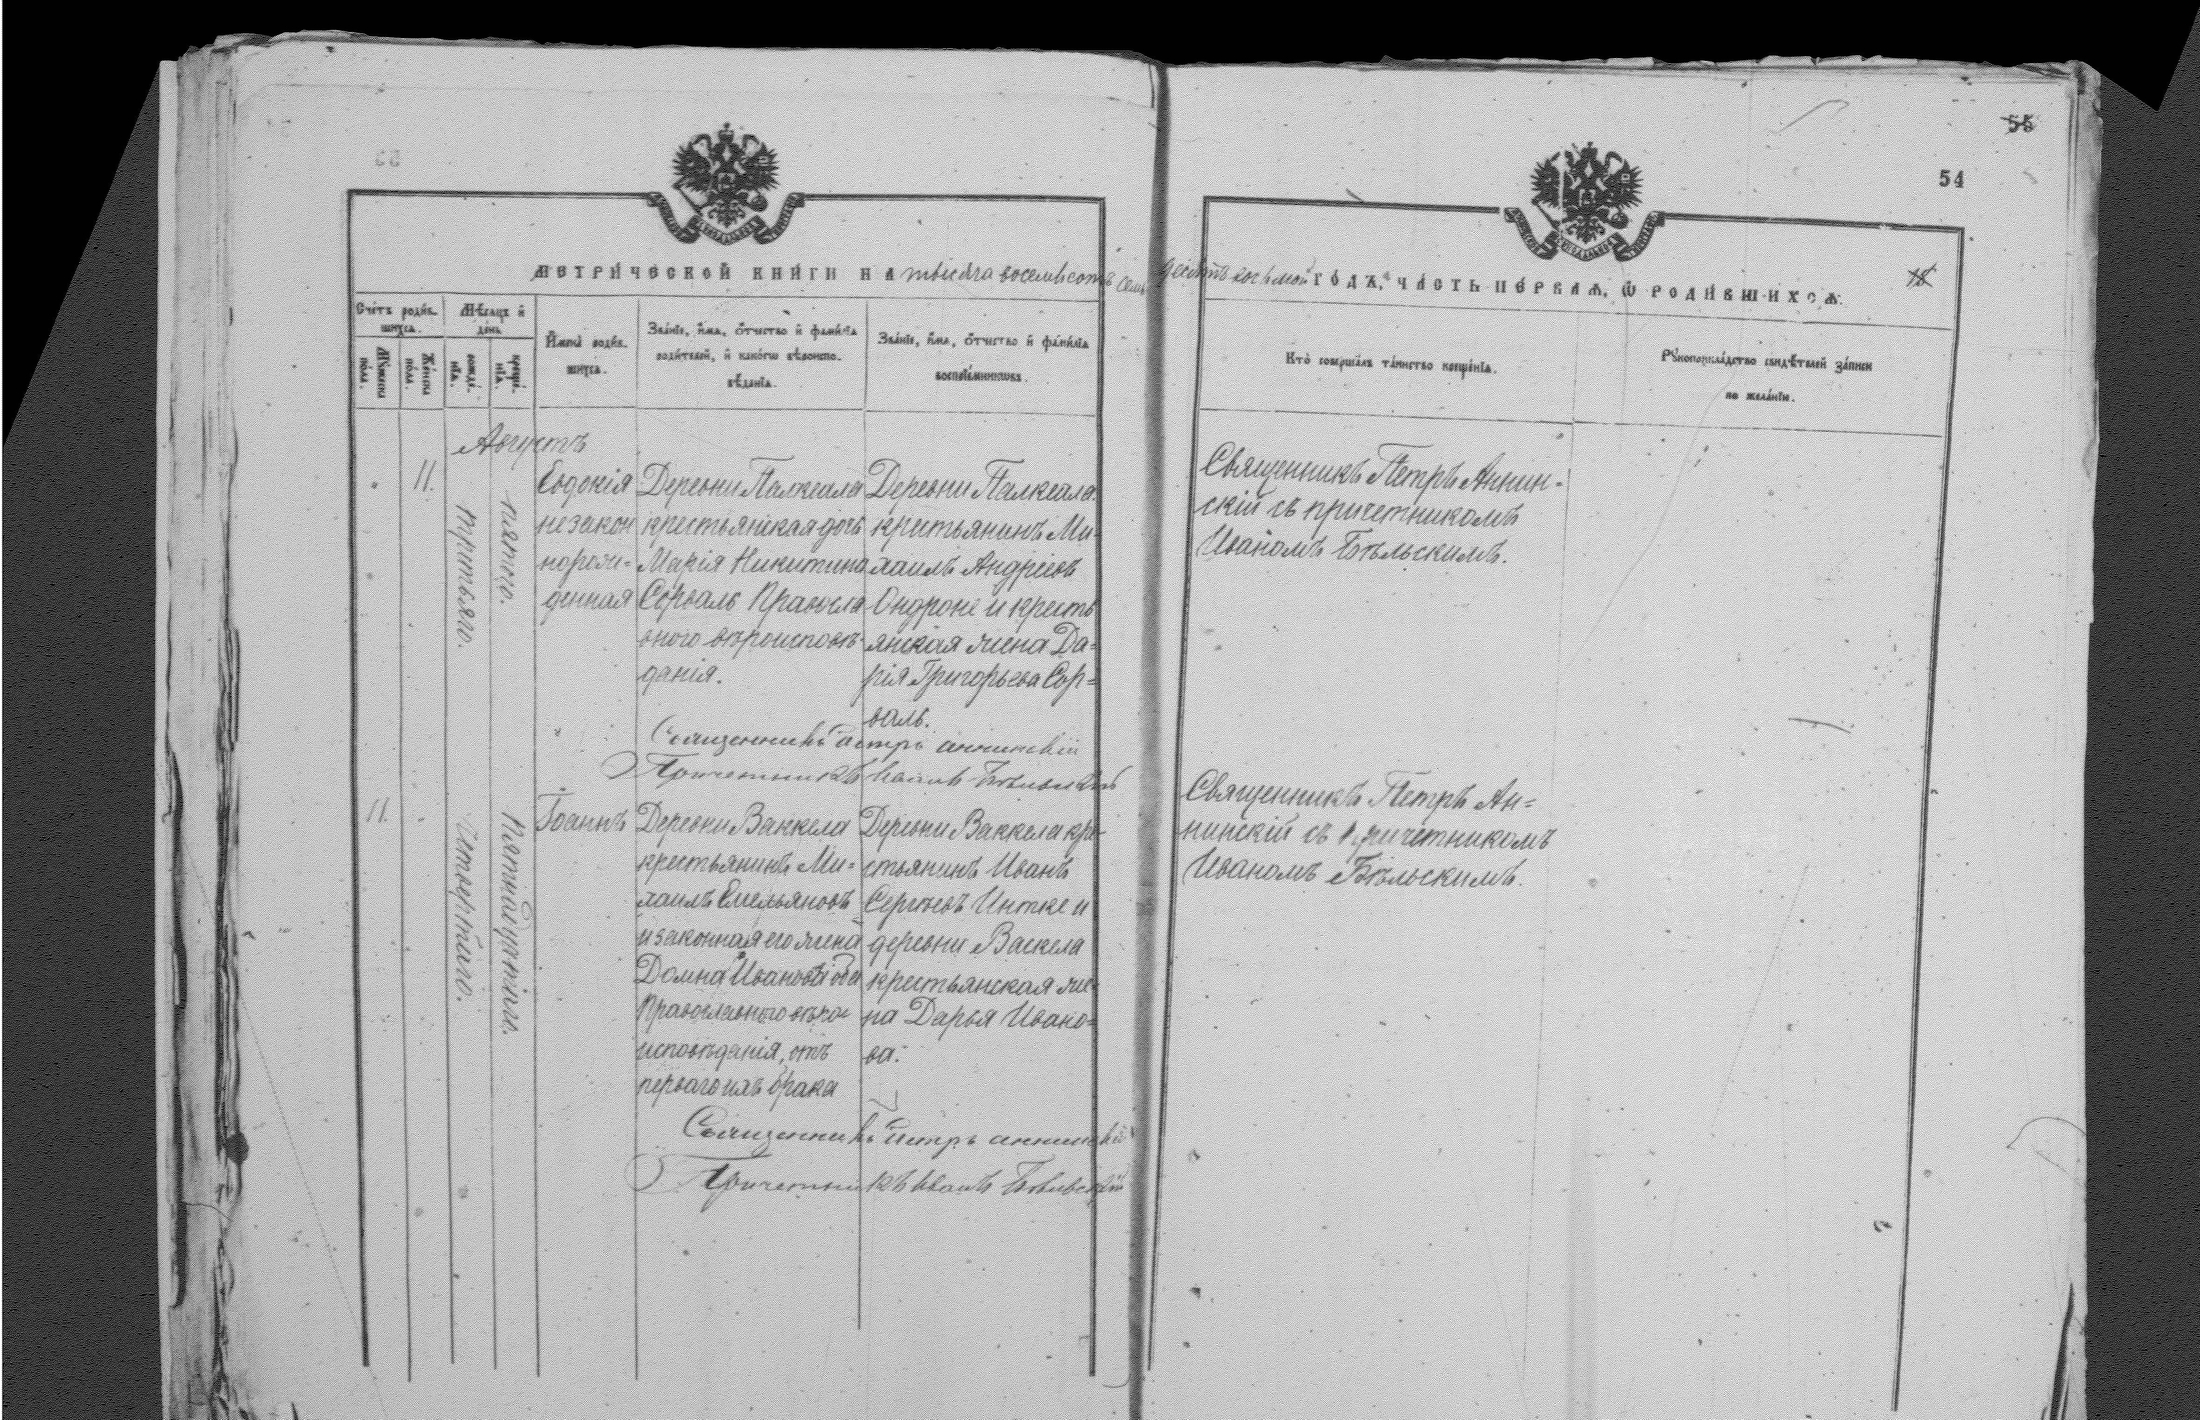 55
54
МЕТРИЧЕСКОЙ КНИГИ НА тысяча восемьсотъ семь
десятъ восьмой ГОДЪ, ЧАСТЬ ПЕРВАЯ, Ѿ РОДИВШИХСЯ.
18
Счетъ родив-
шихся.
Мужеска
пола.
Женска
пола.
Мѣсяцъ и
день
рожде-
нія.
креще-
нія.
Имена родив-
шихся.
Званіе, имя, отчество и фамилія
родителей, и какогѡ вѣроиспо-
вѣданія.
Званіе, имя, отчество и фамилія
воспріемниковъ.
Кто совершалъ таинство крещенія.
Рукоприкладство свидѣтелей записи
по желанію.
Августъ
11.
третьяго.
пятого.
Евдокія
незакон
норож-
денная
Деревни Палкеала
крестьянская дочь
Марія Никитина
Сорваль Правосла
внаго вѣроисповѣ-
данія.
Деревни Палкеала
крестьянинъ Ми-
хаилъ Андреевъ
Ондроне и кресть
янская жена Да-
рія Григорьева Сор-
валь.
Священникъ Петръ Аннин-
скій съ причетникомъ
Иваномъ Бѣльскимъ.
Священникъ Петръ Аннинскій
Причетникъ Иванъ Бѣльскій
11.
Четвертаго.
Пятнадцатаго.
Іоаннъ
Деревни Ваккела
крестьянинъ Ми-
хаилъ Емельяновъ
и законная его жена
Домна Иванова оба
Православнаго вѣро-
исповѣданія, отъ
перваго ихъ брака
Деревни Ваккела кре-
стьянинъ Иванъ
Сергѣевъ Интке и
деревни Васкела
крестьянская же-
на Дарья Ивано-
ва.
Священникъ Петръ Ан-
нинскій съ причетникомъ
Иваномъ Бѣльскимъ.
Священникъ Петръ Аннинскій
Причетникъ Иванъ Бѣльскій